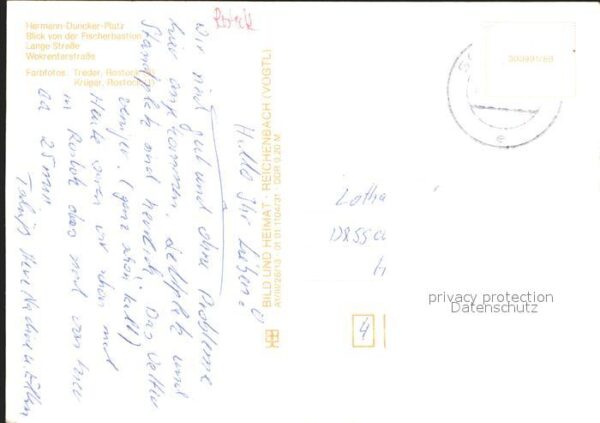 Hermann-Duncker-Platz
Blick von der Fischerbastion
Lange Straße
Wokrenterstraße
Farbfotos: Treder, Rostock
Krüger, Rostock (1)
Rostock
Hallo Ihr Lieben!
Wir sind gut und ohne Probleme
hier angekommen. Zeltplatz und
Standplatz sind herrlich. Das Wetter
weniger. (ganz schön kalt)
Heute waren wir schon mal
in Rostock das sind von hier
ca 25 min.
BILD UND HEIMAT · REICHENBACH (VOGTL)
A1/IV/26/13 01 01 1104/31 · DDR 0,20 M
Lotha
Dessa
4
privacy protection
Datenschutz